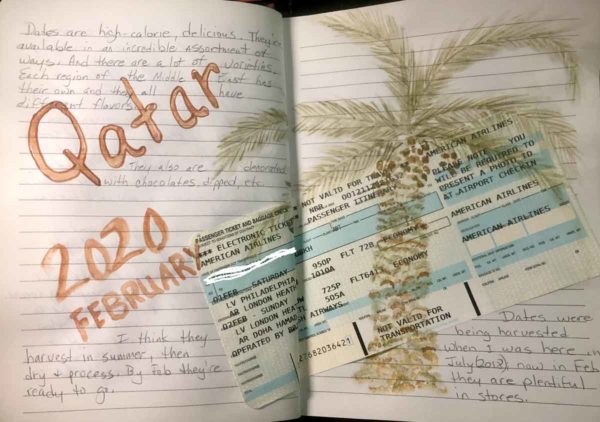 Dates are high-calorie, delicious. They're
available in an incredible assortment of
ways. And there are a lot of varieties.
Each region of the Middle East has
their own and they all have
different flavors.
Qatar
They also are decorated
with chocolates, dipped, etc.
2020
FEBRUARY
I think they
harvest in summer, then
dry & process. By Feb they're
ready to go.
PASSENGER TICKET AND BAGGAGE CHECK
*** ELECTRONIC TICKET
AMERICAN AIRLINES
01FEB - SATURDAY
LV PHILADELPHIA
AR LONDON HEATH
02FEB - SUNDAY
LV LONDON HEA
AR DOHA HAMAD
OPERATED BY
AIRWAYS
NOT VALID FOR TRA
NBR
PASSENGER ITINERA
950P FLT 728 ECONOMY
1010A
725P FLT641 ECONOMY
505A
27682036421
NOT VALID FOR
TRANSPORTATION
AMERICAN AIRLINES
PLEASE NOTE - YOU
WILL BE REQUIRED TO
PRESENT A PHOTO ID
AT AIRPORT CHECKIN
AMERICAN AIRLINES
AMERICAN AIRLINES
Dates were
being harvested
when I was here in
July (2018), now in Feb
they are plentiful
in stores.